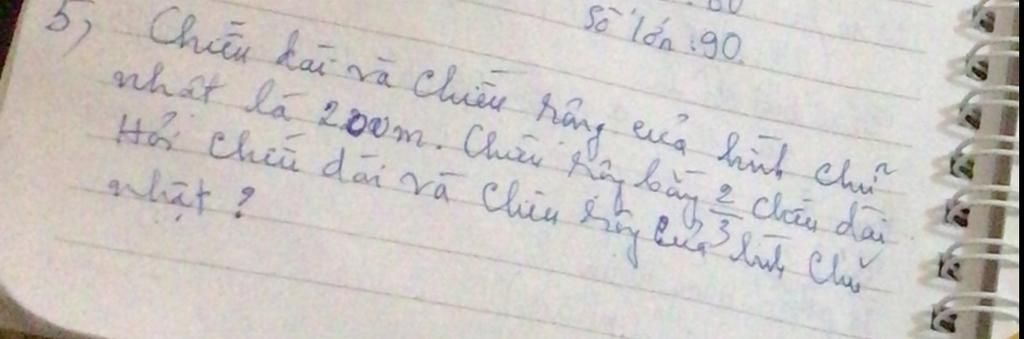 Số lớn : 90.
5) Chiều dài và chiều rộng của hình chữ
nhật là 200m. Chiều rộng bằng 2/3 chiều dài
Hỏi chiều dài và chiều rộng của hình chữ
nhật ?